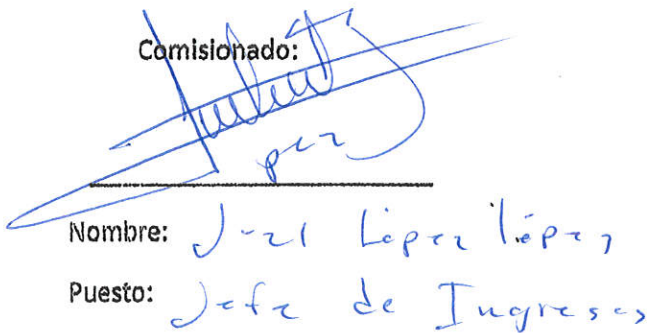 Comisionado:
Nombre: López López
Puesto: Jefe de Ingresos